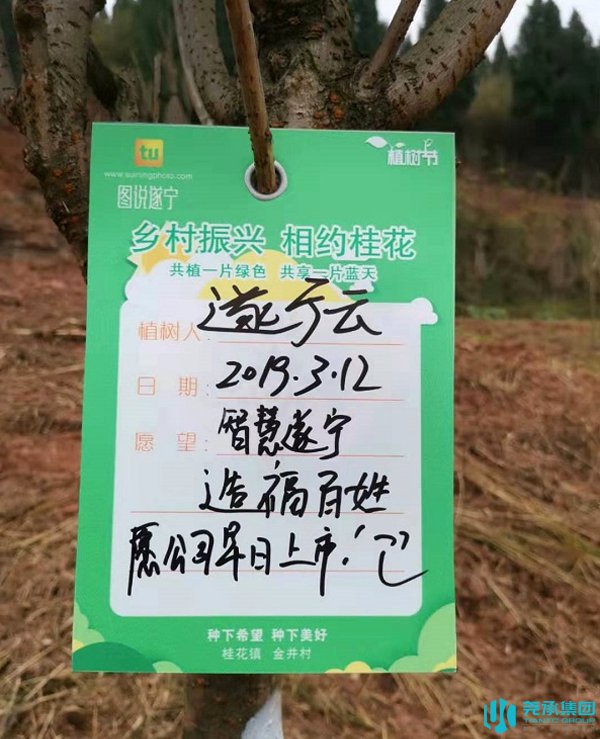 tu
植树节
www.suiningphoto.com
图说遂宁
乡村振兴 相约桂花
共植一片绿色 共享一片蓝天
植树人: 遂宁云
日期: 2019.3.12
愿望: 智慧遂宁
造福百姓
愿公司早日上市!
种下希望 种下美好
桂花镇 金井村
尧承集团